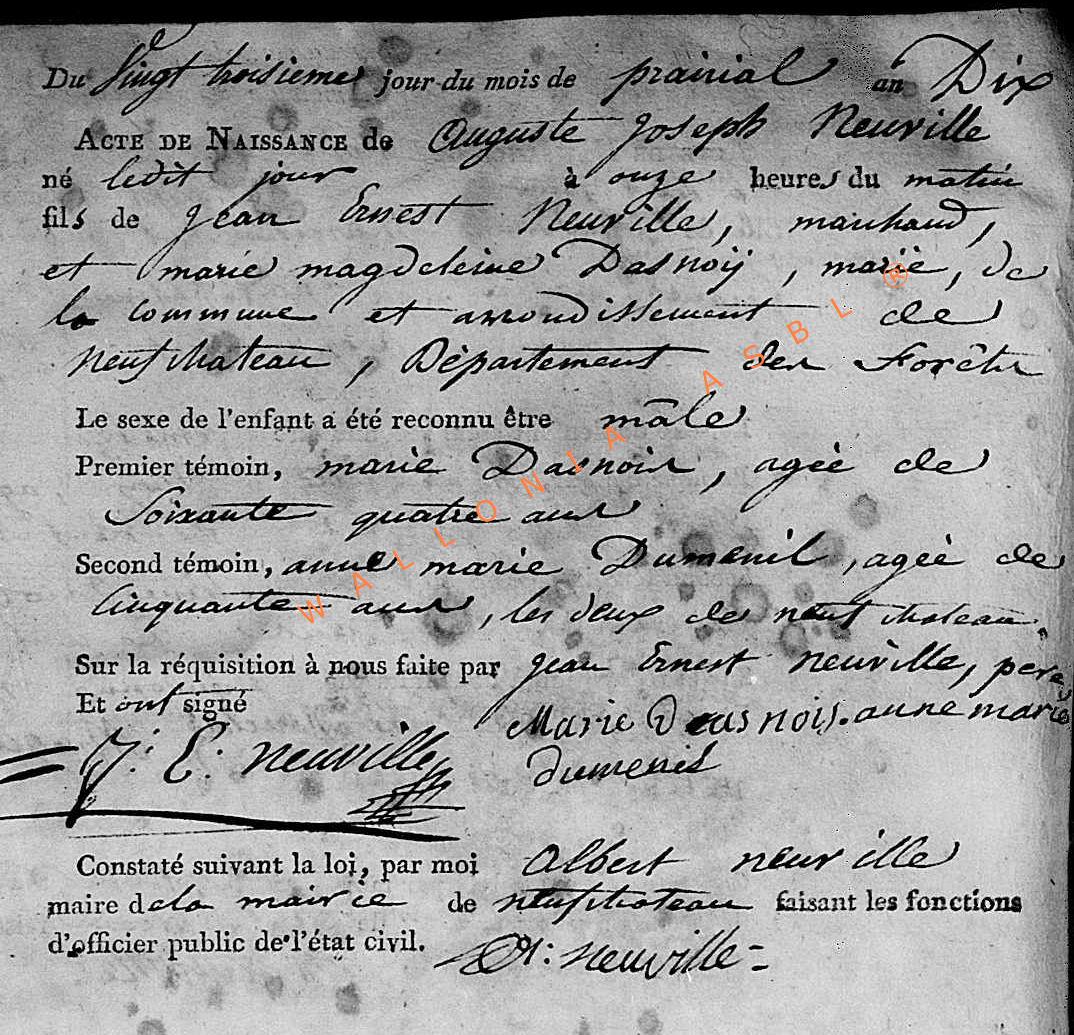 Du Vingt troisieme jour du mois de prairial an Dix
ACTE DE NAISSANCE de Auguste Joseph Neuville
né ledit jour à onze heures du matin
fils de Jean Ernest Neuville, marchand,
et marie magdeleine Dasnoij, marié, de
la commune et arrondissement de
neufchateau, Département des Forêts
Le sexe de l'enfant a été reconnu être mâle
Premier témoin, marie Dasnois, agée de
Soixante quatre ans
Second témoin, anne marie Dumenil, agée de
Cinquante ans, les deux de neufchateau.
Sur la réquisition à nous faite par Jean Ernest neuville, pere
Et ont signé
Marie Dasnois. anne marie
J: E: neuville
dumenil
Constaté suivant la loi, par moi Albert neuville
maire de la mairie de neufchateau faisant les fonctions
d'officier public de l'état civil.
A: neuville =
WALLONIA ASBL ®